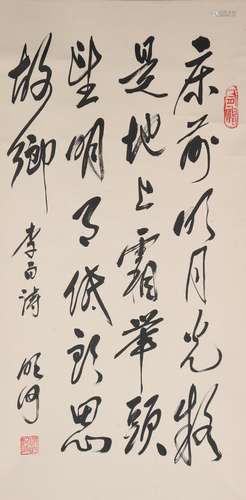 床前明月光疑
是地上霜舉頭
望明月低頭思
故鄉
李白詩